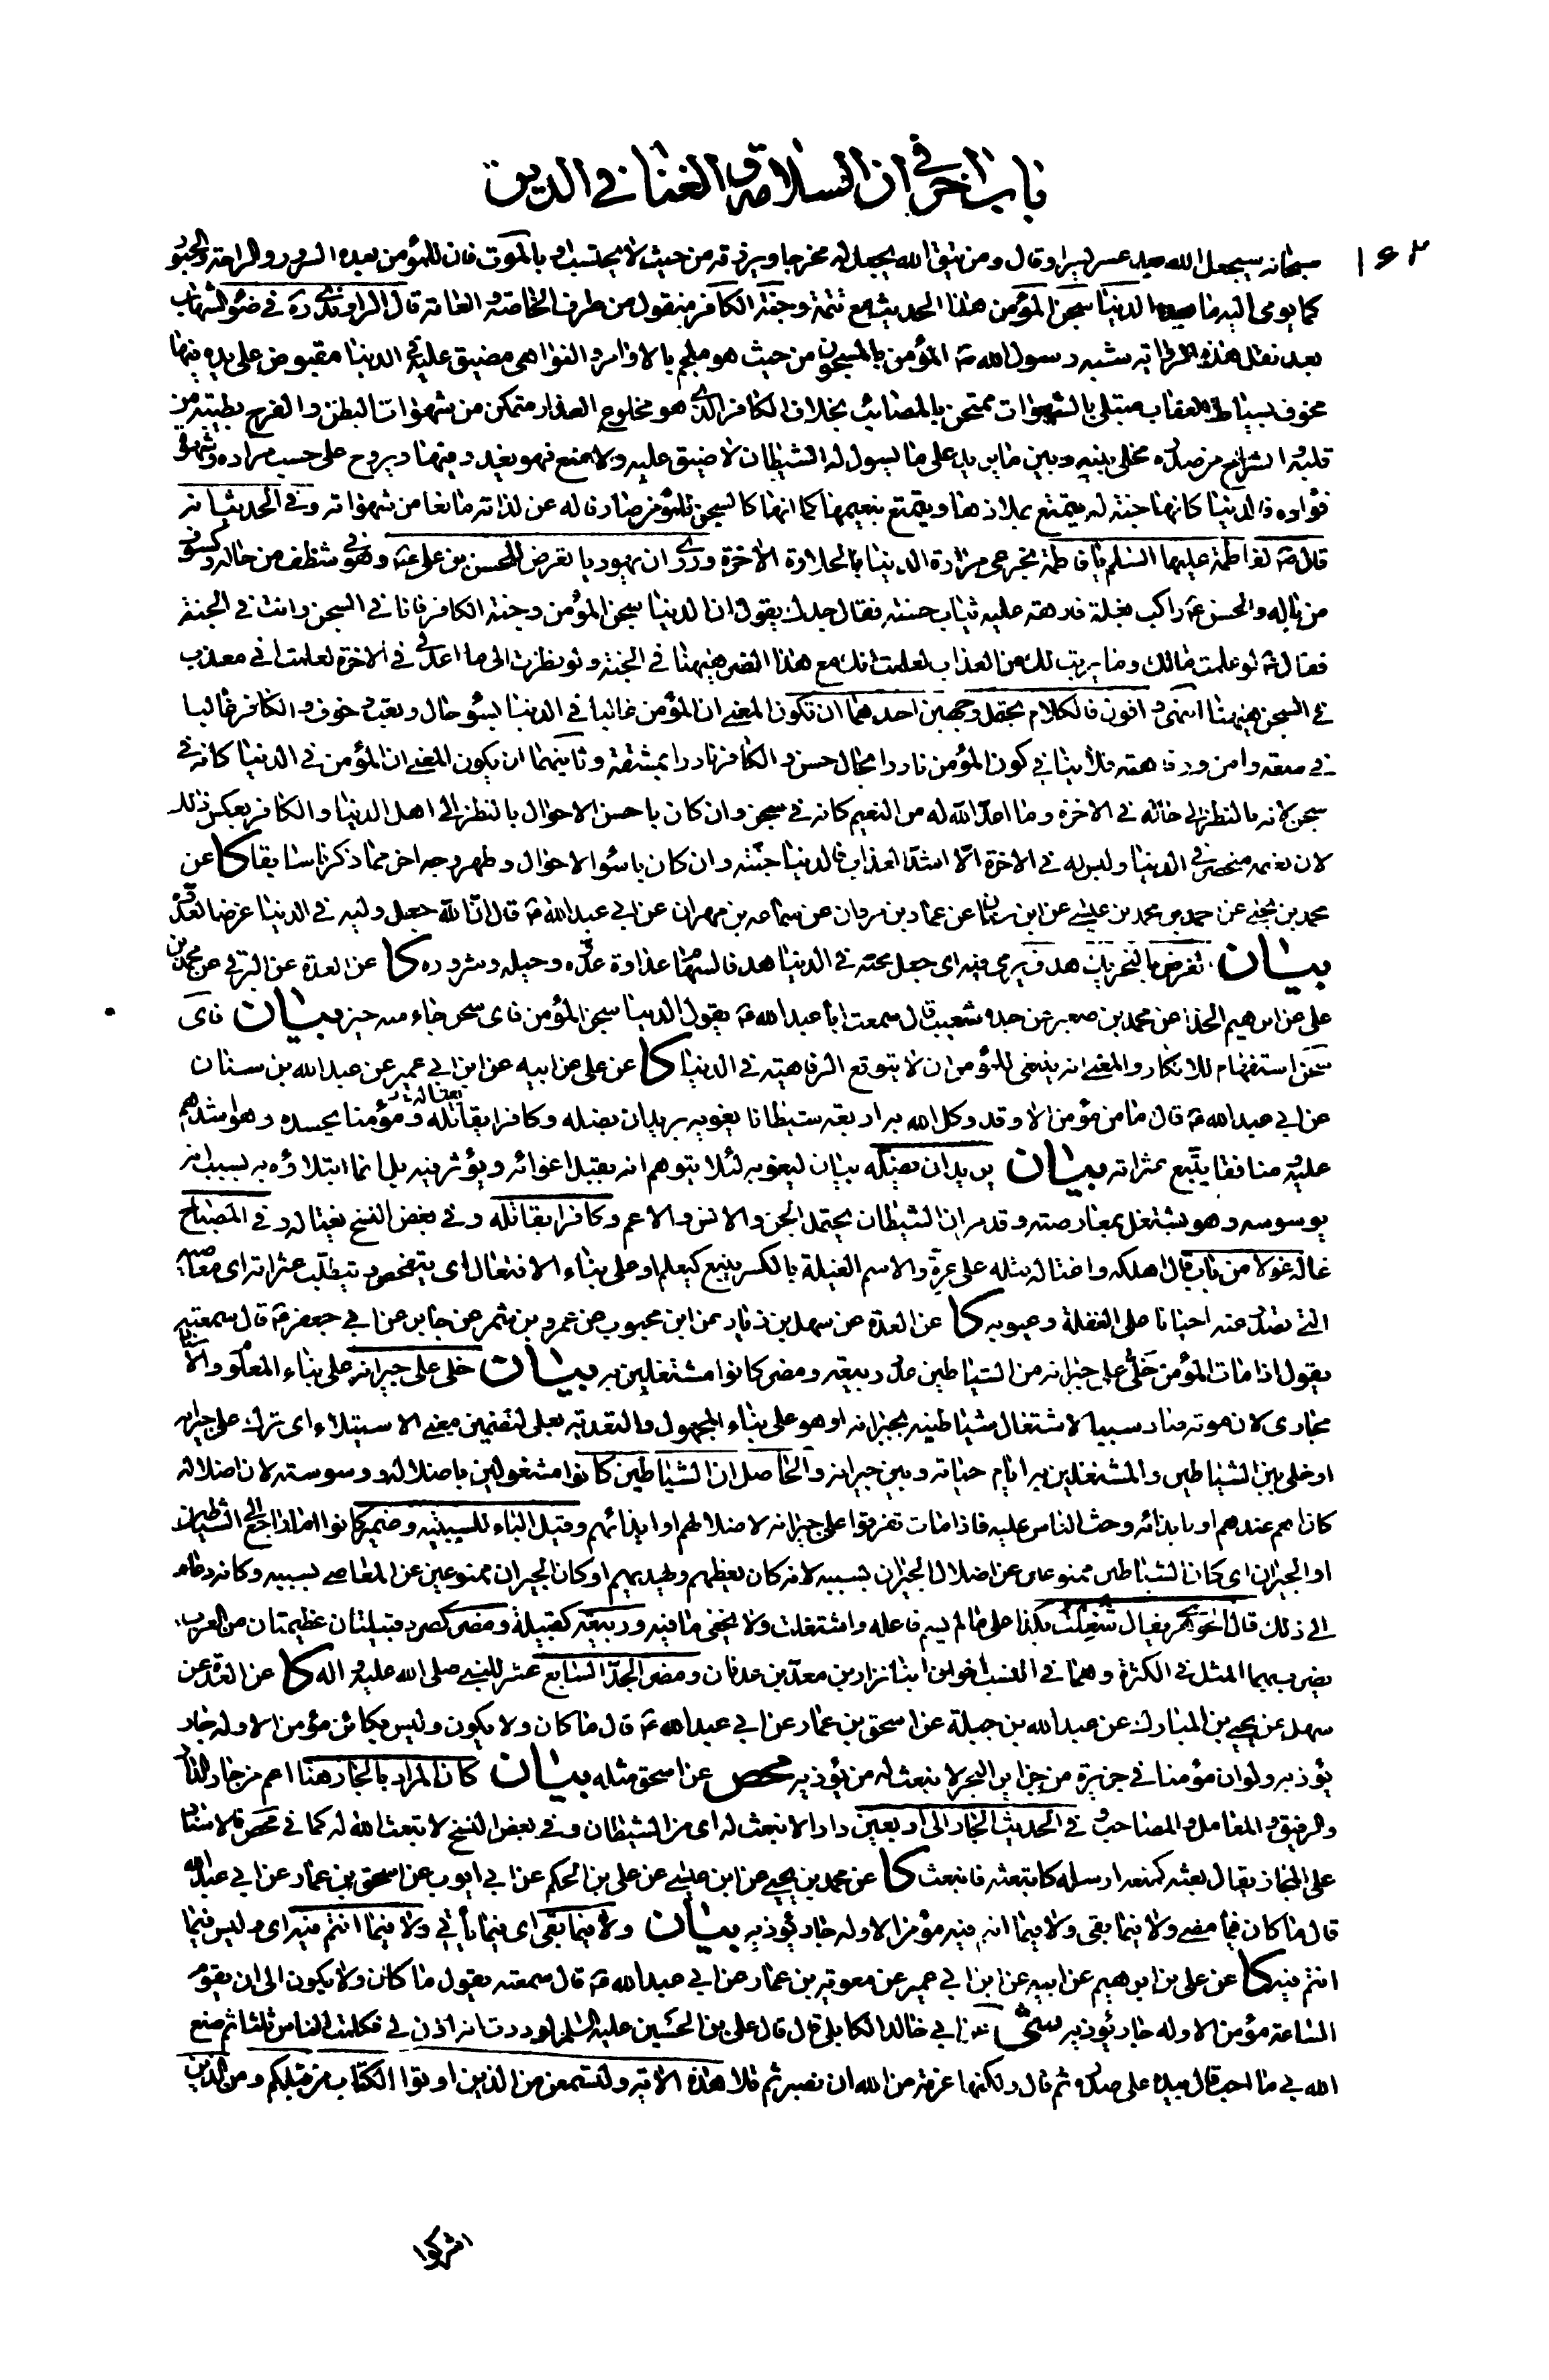 باب اخر في ان السلامة و الغنا في الدين
١٦٢
سبحانه سيجعل الله بعد عسر يسرا وقال ومن يتق الله يجعل له مخرجا ويرزقه من حيث لا يحتسب او بالموت فان للمؤمن بعده السرور والراحة والحبور
كما يومى اليه ما بعده الدنيا سجن المؤمن هذا الحديث مع تتمة وجنة الكافر منقول من طرق الخاصة و العامة قال الراوندى ره في ضوء الشهاب
بعد نقل هذه الرواية شبه رسول الله ص المؤمن بالمسجون من حيث هو ملجم بالاوامر و النواهى مضيق عليه في الدنيا مقبوض على يده فيها
مخوف بسياط العقاب مبتلى بالشهوات ممتحن بالمصائب بخلاف الكافر الذى هو مخلوع العذار متمكن من شهوات البطن و الفرج بطيبة من
قلبه و انشراح من صدره مخلى بينه وبين ما يريد على ما يسول له الشيطان لا ضيق عليه ولا منع فهو يغدو فيها ويروح على حسب مراده وشهوة
فؤاده فالدنيا كانها جنة له يتمتع بملاذها ويتمتع بنعيمها كما انها كالسجن للمؤمن صارفا له عن لذاته مانعا من شهواته وفى الحديث انه
قال ص لفاطمة عليها السلم يا فاطمة تجرعى مرارة الدنيا لحلاوة الاخرة وروى ان يهوديا تعرض للحسن بن على ع وهو في شظف من حاله وكسوف
من باله والحسن ع راكب بغلة فارهة عليه ثياب حسنة فقال جدك يقول ان الدنيا سجن المؤمن وجنة الكافر فانا في السجن وانت في الجنة
فقال ع لو علمت مالك وما يرتب لك من العذاب لعلمت انك مع هذا الضر ههنا في الجنة ولو نظرت الى ما اعد لى في الاخرة لعلمت انى معذب
في السجن ههنا انتهى و اقول فالكلام يحتمل وجهين احدهما ان تكون المعنى ان المؤمن غالبا في الدنيا بسوء حال وتعب و خوف و الكافر غالبا
في سعة وامن ورفاهة فلا ينافى كون المؤمن نادرا بحال حسن و الكافر نادرا بمشقة و ثانيهما ان يكون المعنى ان المؤمن في الدنيا كانه في
سجن لانه بالنظر الى حاله في الاخرة وما اعد الله له من النعيم كانه في سجن وان كان باحسن الاحوال بالنظر الى اهل الدنيا و الكافر بعكس ذلك
لان نعيمه منحصر في الدنيا وليس له في الاخرة الا اشد العذاب فالدنيا جنته وان كان باسوء الاحوال وظهر وجه اخر مما ذكرنا سابقا كا عن
محمد بن يحيى عن احمد بن محمد بن عيسى عن ابن سنان عن عمار بن مروان عن سماعة بن مهران عن ابي عبد الله ع قال ان الله جعل وليه في الدنيا غرضا لعدوه
بيان الغرض بالتحريك هدف يرمى فيه اى جعل محبه في الدنيا هدفا لسهام عداوة عدوه وحيله وشروره كا عن العدة عن البرقى عن محمد بن
على عن ابرهيم الحذاء عن محمد بن صغير عن جده شعيب قال سمعت ابا عبد الله ع يقول الدنيا سجن المؤمن فاى سجن جاء منه خير بيان فاى
سجن استفهام للانكار والمعنى انه ينبغى للمؤمن ان لا يتوقع الرفاهية في الدنيا كا عن على عن ابيه عن ابن ابي عمير عن عبد الله بن سنان
عن ابي عبد الله ع قال ما من مؤمن الا وقد وكل الله به اربعة شيطانا يغويه يريد ان يضله وكافرا يقاتله و مؤمنا يحسده وهو اشدهم
يغتاله خ
عليه و منافقا يتتبع عثراته بيان يريد ان يضله بيان ليغويه لئلا يتوهم انه يقبل اغوائه ويؤثر فيه بل انما ابتلاؤه به بسبب انه
يوسوسه وهو يشتغل بمعارضته وقد مر ان الشيطان يحتمل الجن والانس و الاعم وكافرا يقاتله وفى بعض النسخ يغتاله و في المصباح
غاله غولا من باب قال اهلكه واغتاله قتله على غرة والاسم الغيلة بالكسر يتبع كيعلم او على بناء الافتعال اى يتفحص و يتطلب عثراته اى معاصيه
التى تصدر عنه احيانا على الغفلة وعيوبه كا عن العدة عن سهل بن زياد عن ابن محبوب عن عمرو بن شمر عن جابر عن ابي جعفر ع قال سمعته
يقول اذا مات المؤمن خلى على جيرانه من الشياطين عدد ربيعة ومضر كانوا مشتغلين به بيان خلى على جيرانه على بناء المعلوم والاسناد
مجازى لان موته صار سببا لاشتغال شياطينه بجيرانه او هو على بناء المجهول والتعدية بعلى لتضمين معنى الاستيلاء اى ترك على جيرانه
او خلى بين الشياطين والمشتغلين به ايام حياته وبين جيرانه والحاصل ان الشياطين كانوا مشغولين باضلاله و وسوسته لان اضلاله
كان اهم عندهم او بايذائه وحث الناس عليه فاذا مات تفرقوا على جيرانه لاضلالهم او ايذائهم وقيل الباء للسببية وضمير كانوا اما راجع الى الشياطين
او الجيران اى كان الشياطين ممنوعين عن اضلال الجيران بسببه لانه كان يعظهم ويهديهم او كان الجيران ممنوعين عن المعاصى بسببه وكانه دعاه
الى ذلك قال الجوهرى يقال شغلت بكذا على ما لم يسم فاعله واشتغلت ولا يخفى ما فيه و ربيعة كقبيلة ومضر كصرد قبيلتان عظيمتان من العرب
يضرب بهما المثل في الكثرة وهما في النسب اخوان ابنا نزار بن معد بن عدنان ومضر الجد السابع عشر للنبى صلى الله عليه و اله كا عن العدة عن
سهل عن يحيى بن المبارك عن عبد الله بن جبلة عن اسحق بن عمار عن ابي عبد الله ع قال ما كان ولا يكون وليس بكائن مؤمن الا وله جار
يؤذيه ولو ان مؤمنا في جزيرة من جزاير البحر لانبعث له من يؤذيه محص عن اسحق مثله بيان كان المراد بالجار هنا اعم من جار الدار
و الرفيق و المعامل و المصاحب و في الحديث الجار الى اربعين دارا لانبعث له اى من الشيطان وفى بعض النسخ لابتعث الله له كما في محص فالاسناد
على المجاز يقال بعثه كمنعه ارسله كابتعثه فانبعث كا عن محمد بن يحيى عن ابن عيسى عن على بن الحكم عن ابي ايوب عن اسحق بن عمار عن ابي عبد الله ع
قال ما كان فيما مضى ولا فيما بقى ولا فيما انتم فيه مؤمن الا وله جار يؤذيه بيان ولا فيما بقى اى فيما ياتى ولا فيما انتم فيه اى وليس فيما
انتم فيه كا عن على بن ابرهيم عن ابيه عن ابن ابي عمير عن معوية بن عمار عن ابي عبد الله ع قال سمعته يقول ما كان ولا يكون الى ان يقوم
الساعة مؤمن الا وله جار يؤذيه شى عن ابي خالد الكابلى قال قال على بن الحسين عليه السلم لوددت انه اذن لى فكلمت الناس ثلثا ثم صنع
الله بى ما احب قال بيده على صدره ثم قال ولكنها عزمة من الله ان نصبر ثم تلا هذه الاية ولتسمعن من الذين اوتوا الكتاب من قبلكم ومن الذين
اشركوا